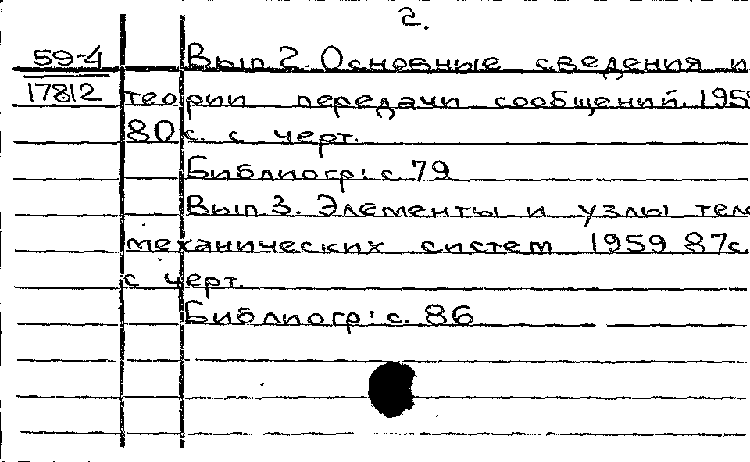 2.
59-4 Вып 2. Основные сведения и
17812 теории передачи сообщений. 195
80 с. с черт.
Библиогр: с. 79
Вып 3. Элементы и узлы теле
механических систем 1959 87с.
с черт.
Библиогр: с. 86